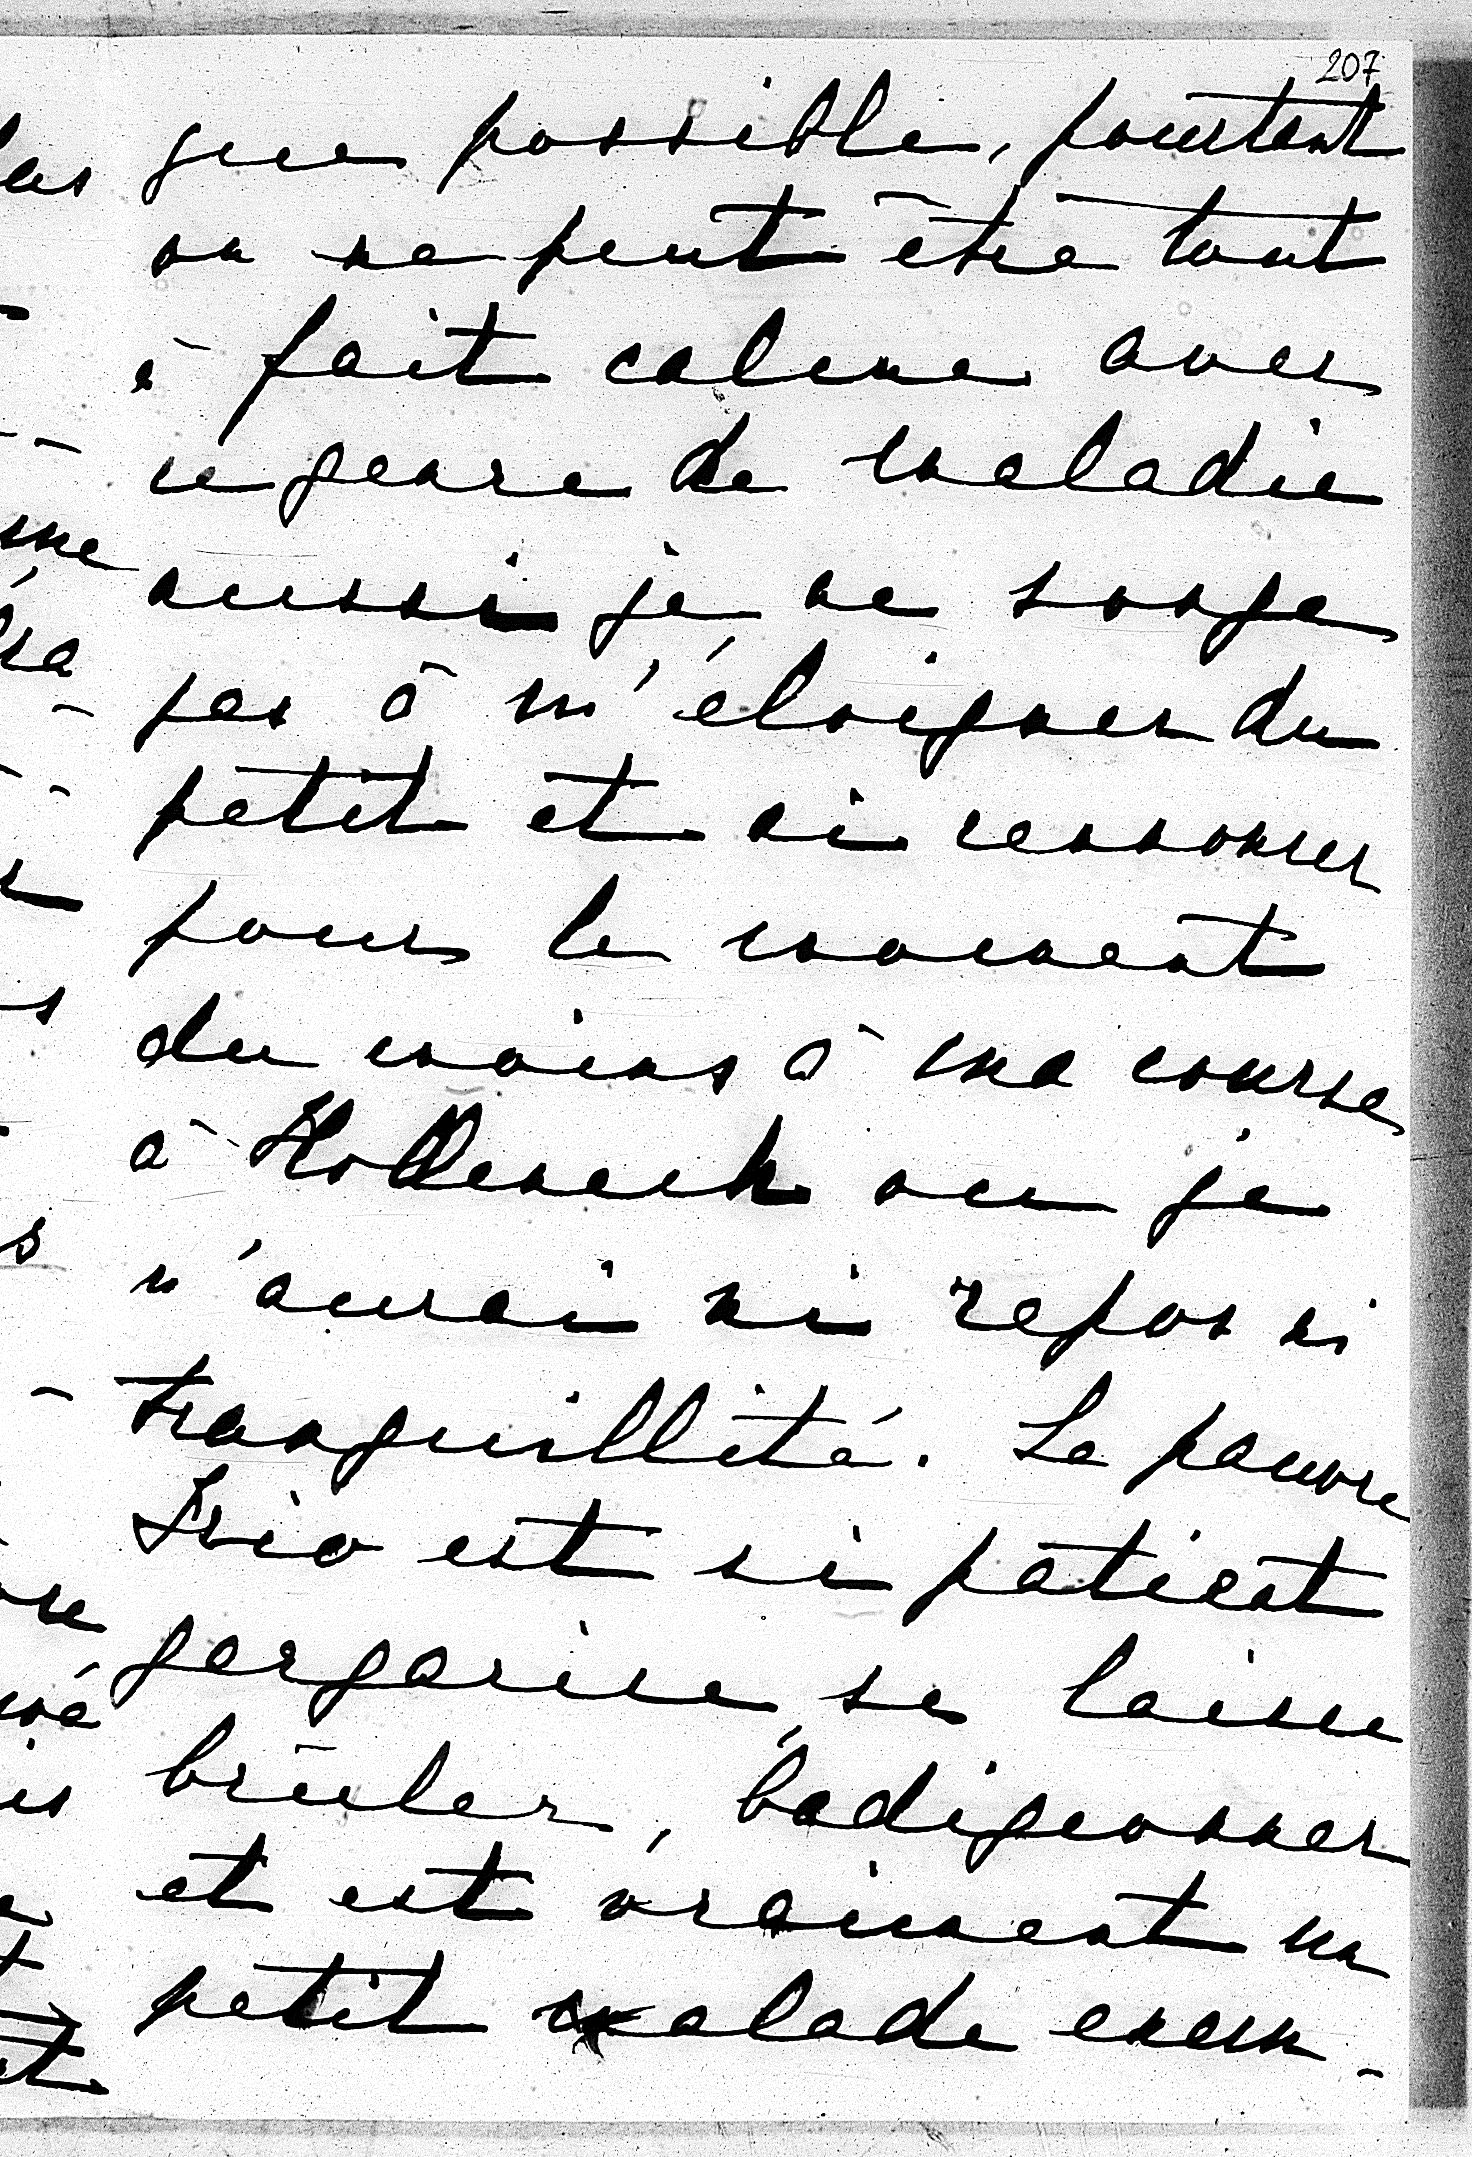 207
que possible, pourtant
on ne peut être tout
à fait calme avec
ce genre de maladie
aussi je ne songe
pas à m'éloigner du
petit et ni renoncer
pour le moment
du moins à ma course
à Hollenech où je
n'aurai ni repos ni
tranquillité. Le pauvre
est si patient
gargarise, se laisse
brûler, badigeonner
et est vraiment un
petit malade exem-